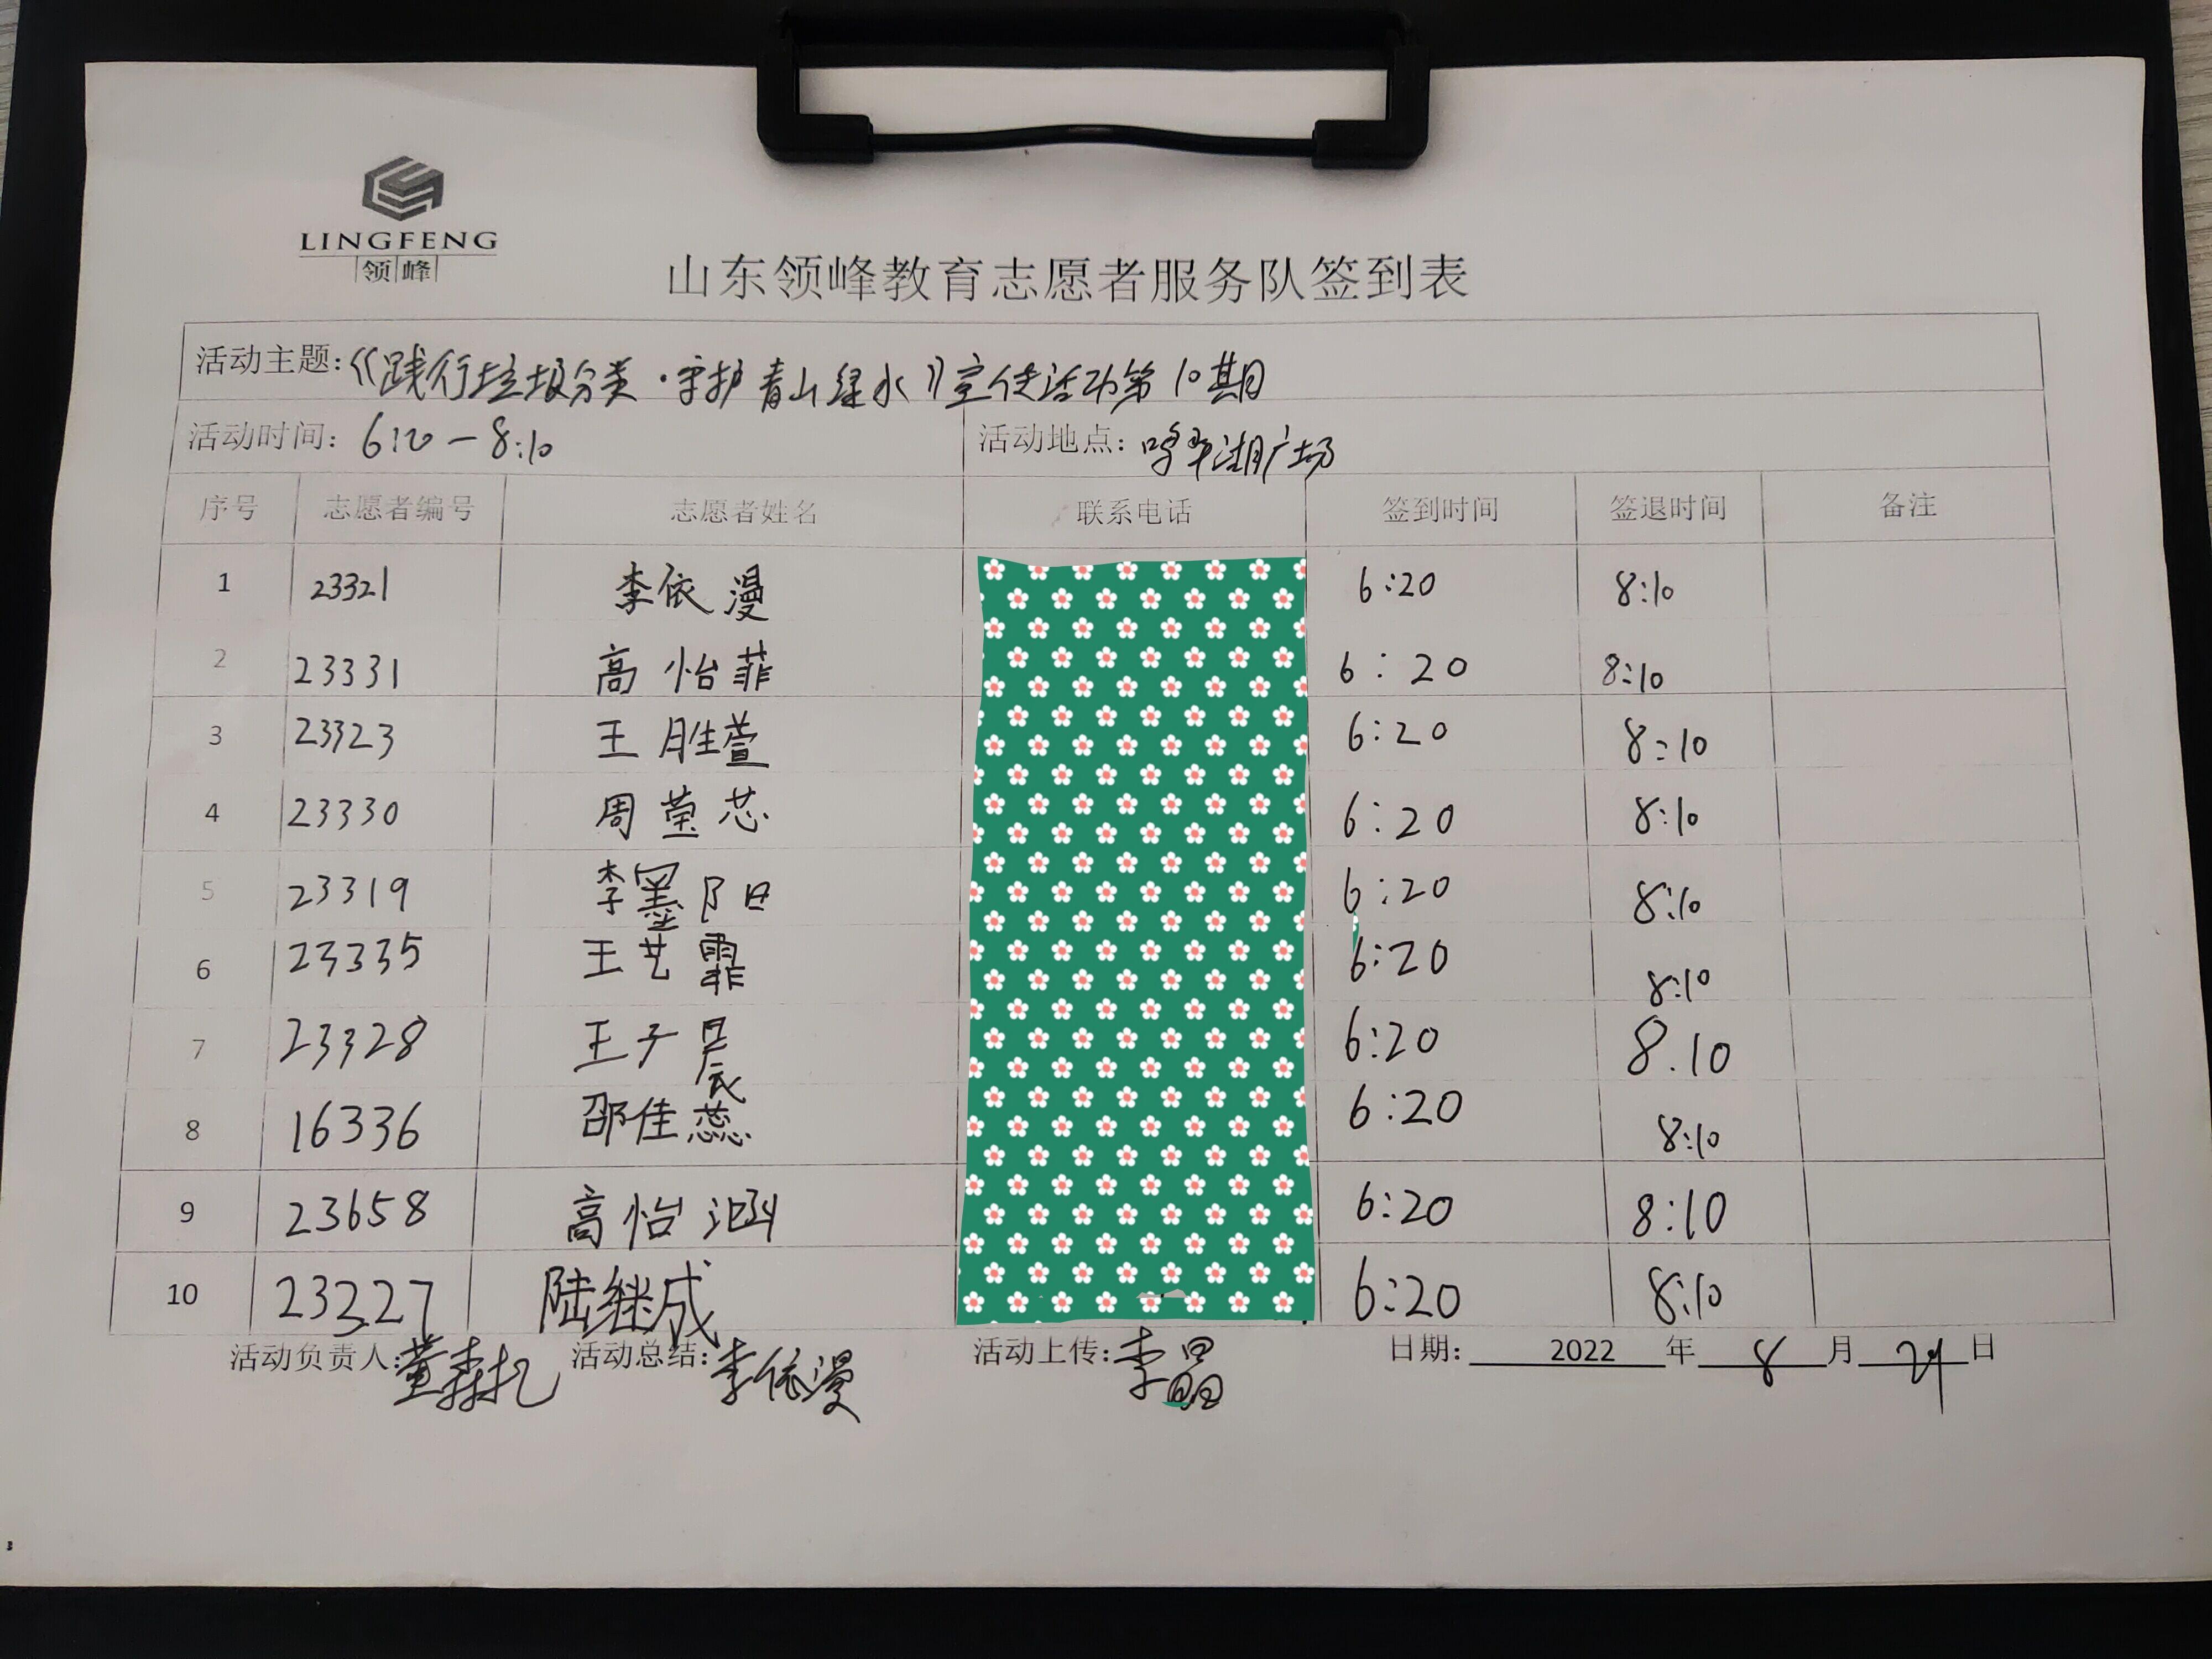 LINGFENG
领峰
山东领峰教育志愿者服务队签到表
活动主题:《践行垃圾分类·守护青山绿水》宣传活动第10期
活动时间: 6:20-8:10 活动地点: 湖广场
序号 志愿者编号 志愿者姓名 联系电话 签到时间 签退时间 备注
1 23321 李依漫 6:20 8:10
2 23331 高怡菲 6:20 8:10
3 23323 王胜萱 6:20 8:10
4 23330 周莹芯 6:20 8:10
5 23319 李墨阳 6:20 8:10
6 23335 王艺霏 6:20 8:10
7 23328 王子晨 6:20 8.10
8 16336 邵佳蕊 6:20 8:10
9 23658 高怡涵 6:20 8:10
10 23227 陆继成 6:20 8:10
活动负责人: 董森 活动总结: 李依漫 活动上传: 李晶 日期: 2022年8月 日